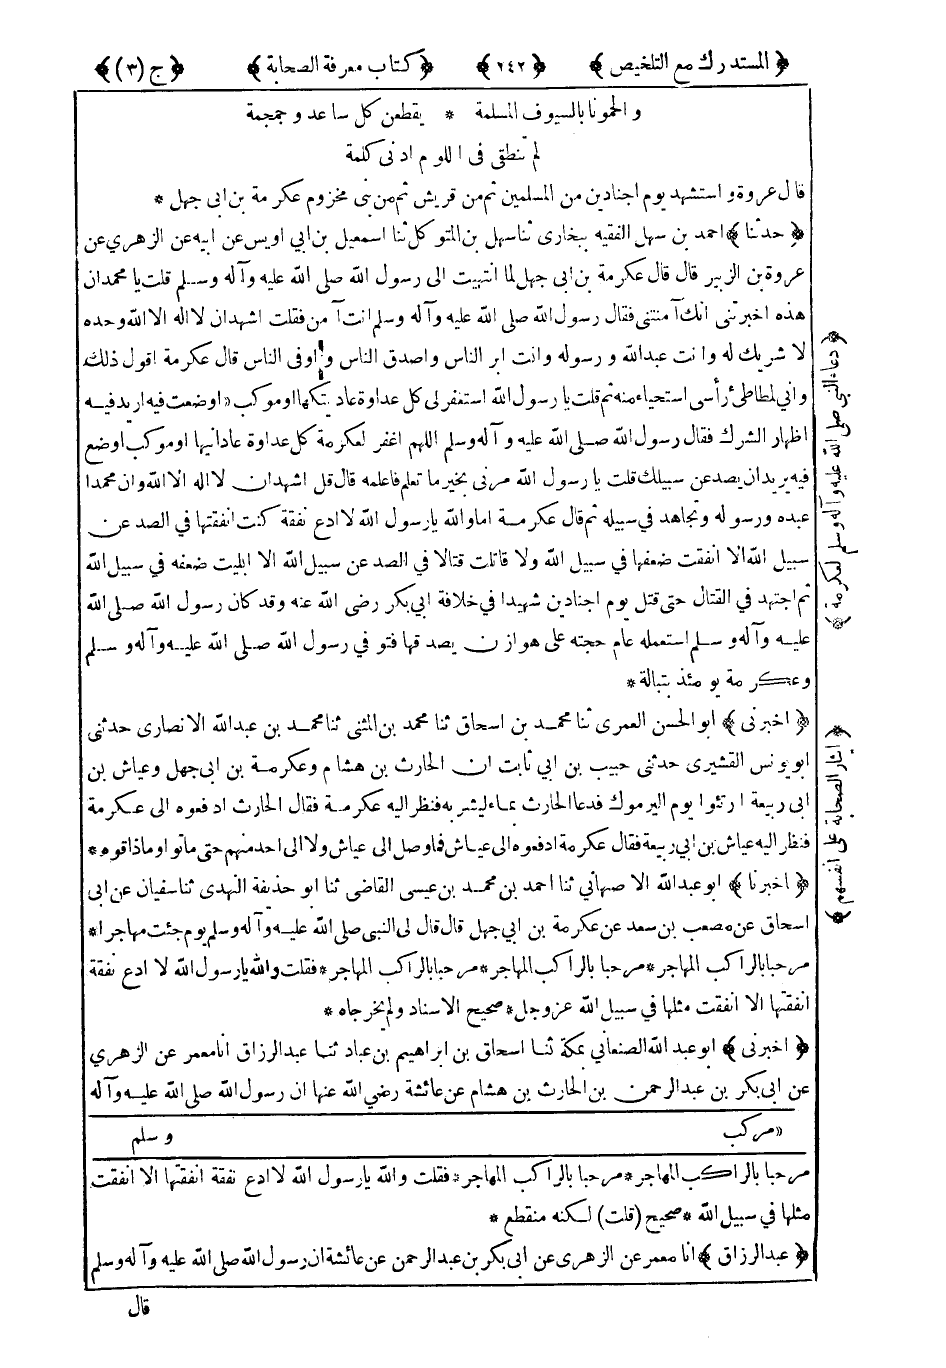 ﴿ المستدرك مع التلخيص ﴾ ﴿ ٢٤٢ ﴾ ﴿ كتاب معرفة الصحابة ﴾ ﴿ ج (٣) ﴾
و الحمونا بالسيوف المسلمة * يقطعن كل ساعد و جمجمة
لم تنطقي فى اللوم ادنى كلمة
قال عروة و استشهد يوم اجنادين من المسلمين ثم من قريش ثم من بنى مخزوم عكرمة بن ابى جهل *
﴿ حدثنا ﴾ احمد بن سهل الفقيه ببخارى ثنا سهل بن المتوكل ثنا اسمعيل بن ابي اويس عن ابيه عن الزهري عن
عروة بن الزبير قال قال عكرمة بن ابى جهل لما انتهيت الى رسول الله صلى الله عليه وآله وسلم قلت يا محمد ان
هذه اخبرتنى انك آمنتنى فقال رسول الله صلى الله عليه وآله وسلم انت آمن فقلت اشهد ان لا اله الا الله وحده
لا شريك له وانت عبد الله و رسوله وانت ابر الناس واصدق الناس و اوفى الناس قال عكرمة اقول ذلك
واني لمطاطئ رأسى استحياء منه ثم قلت يا رسول الله استغفر لى كل عداوة عاديتكها او موكب » اوضعت فيه اريد فيه
اظهار الشرك فقال رسول الله صلى الله عليه وآله وسلم اللهم اغفر لعكرمة كل عداوة عادانيها او موكب اوضع
فيه يريد ان يصد عن سبيلك قلت يا رسول الله مرنى بخير ما تعلم فاعلمه قال قل اشهد ان لا اله الا الله وان محمدا
عبده ورسوله وتجاهد في سبيله ثم قال عكرمة اما والله يا رسول الله لا ادع نفقة كنت انفقتها في الصد عن
سبيل الله الا انفقت ضعفها في سبيل الله ولا قاتلت قتالا في الصد عن سبيل الله الا ابليت ضعفه في سبيل الله
ثم اجتهد في القتال حتى قتل يوم اجنادين شهيدا في خلافة ابي بكر رضى الله عنه وقد كان رسول الله صلى الله
عليه وآله وسلم استعمله عام حجته على هوازن يصدقها فتو في رسول الله صلى الله عليه وآله وسلم
وعكرمة يومئذ بتبالة *
﴿ اخبرنى ﴾ ابو الحسن العمرى ثنا محمد بن اسحاق ثنا محمد بن المثنى ثنا محمد بن عبد الله الانصارى حدثنى
ابو يونس القشيرى حدثنى حبيب بن ابي ثابت ان الحارث بن هشام وعكرمة بن ابى جهل وعياش بن
ابى ربيعة ارتثوا يوم اليرموك فدعا الحارث بماء ليشربه فنظر اليه عكرمة فقال الحارث ادفعوه الى عكرمة
فنظر اليه عياش بن ابي ربيعة فقال عكرمة ادفعوه الى عياش فما وصل الى عياش ولا الى احد منهم حتى ماتوا وما ذاقوه *
﴿ اخبرنا ﴾ ابو عبد الله الاصبهاني ثنا احمد بن محمد بن عيسى القاضى ثنا ابو حذيفة النهدى ثنا سفيان عن ابى
اسحاق عن مصعب بن سعد عن عكرمة بن ابي جهل قال قال لى النبى صلى الله عليه وآله وسلم يوم جئت مهاجرا *
مرحبا بالراكب المهاجر * مرحبا بالراكب المهاجر * مرحبا بالراكب المهاجر * فقلت والله يا رسول الله لا ادع نفقة
انفقتها الا انفقت مثلها في سبيل الله عز وجل * صحيح الاسناد ولم يخرجاه *
﴿ اخبرنى ﴾ ابو عبد الله الصنعاني بمكة ثنا اسحاق بن ابراهيم بن عباد ثنا عبد الرزاق انا معمر عن الزهري
عن ابى بكر بن عبد الرحمن بن الحارث بن هشام عن عائشة رضي الله عنها ان رسول الله صلى الله عليه وآله
» مركب وسلم
مرحبا بالراكب المهاجر * مرحبا بالراكب المهاجر * فقلت والله يا رسول الله لا ادع نفقة انفقتها الا انفقت
مثلها في سبيل الله * صحيح (قلت) لكنه منقطع *
﴿ عبد الرزاق ﴾ انا معمر عن الزهرى عن ابى بكر بن عبد الرحمن عن عائشة ان رسول الله صلى الله عليه وآله وسلم
قال
﴿ دعاء النبى صلى الله عليه وآله وسلم لعكرمة ﴾
﴿ ايثار الصحابة على انفسهم ﴾